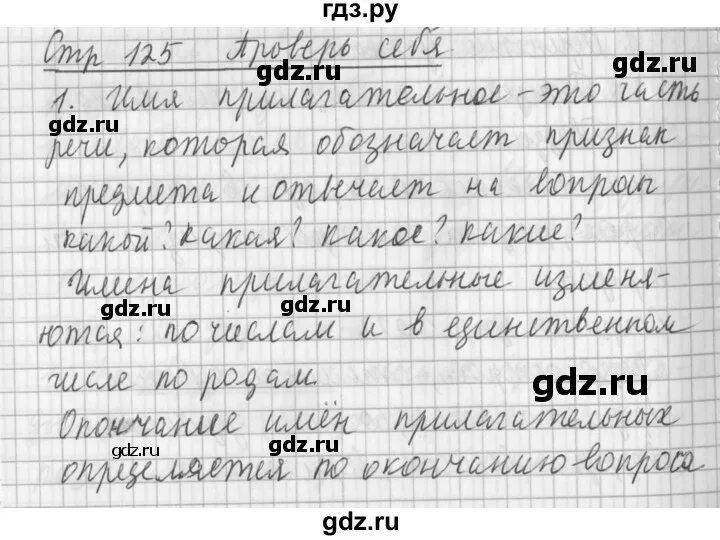 гдз.ру
Стр 125 Проверь себя
1. Имя прилагательное - это часть
gdz.ru
gdz.ru
речи, которая обозначает признак
gdz.ru
предмета и отвечает на вопросы
какой? какая? какое? какие?
Имена прилагательные изменя-
gdz.ru
gdz.ru
ются: по числам и в единственном
числе по родам.
gdz.ru
Окончание имён прилагательных
gdz.ru
gdz.ru
определяется по окончанию вопроса
gdz.ru